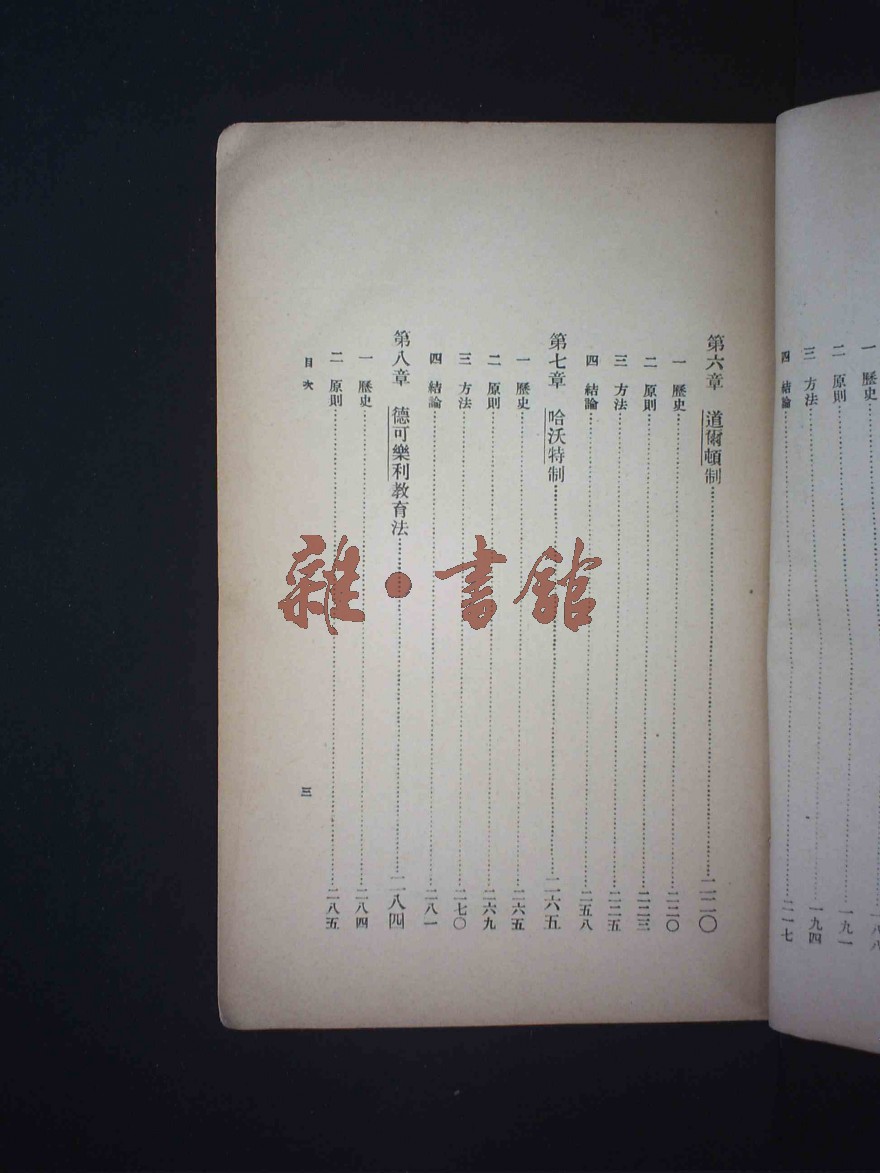 一 歷史……一八八
二 原則……一九一
三 方法……一九四
四 結論……二一七
第六章 道爾頓制……二二〇
一 歷史……二二〇
二 原則……二二三
三 方法……二二五
四 結論……二五八
第七章 哈沃特制……二六五
一 歷史……二六五
二 原則……二六九
三 方法……二七〇
四 結論……二八一
第八章 德可樂利教育法……二八四
一 歷史……二八四
二 原則……二八五
目次
三
雜·書館